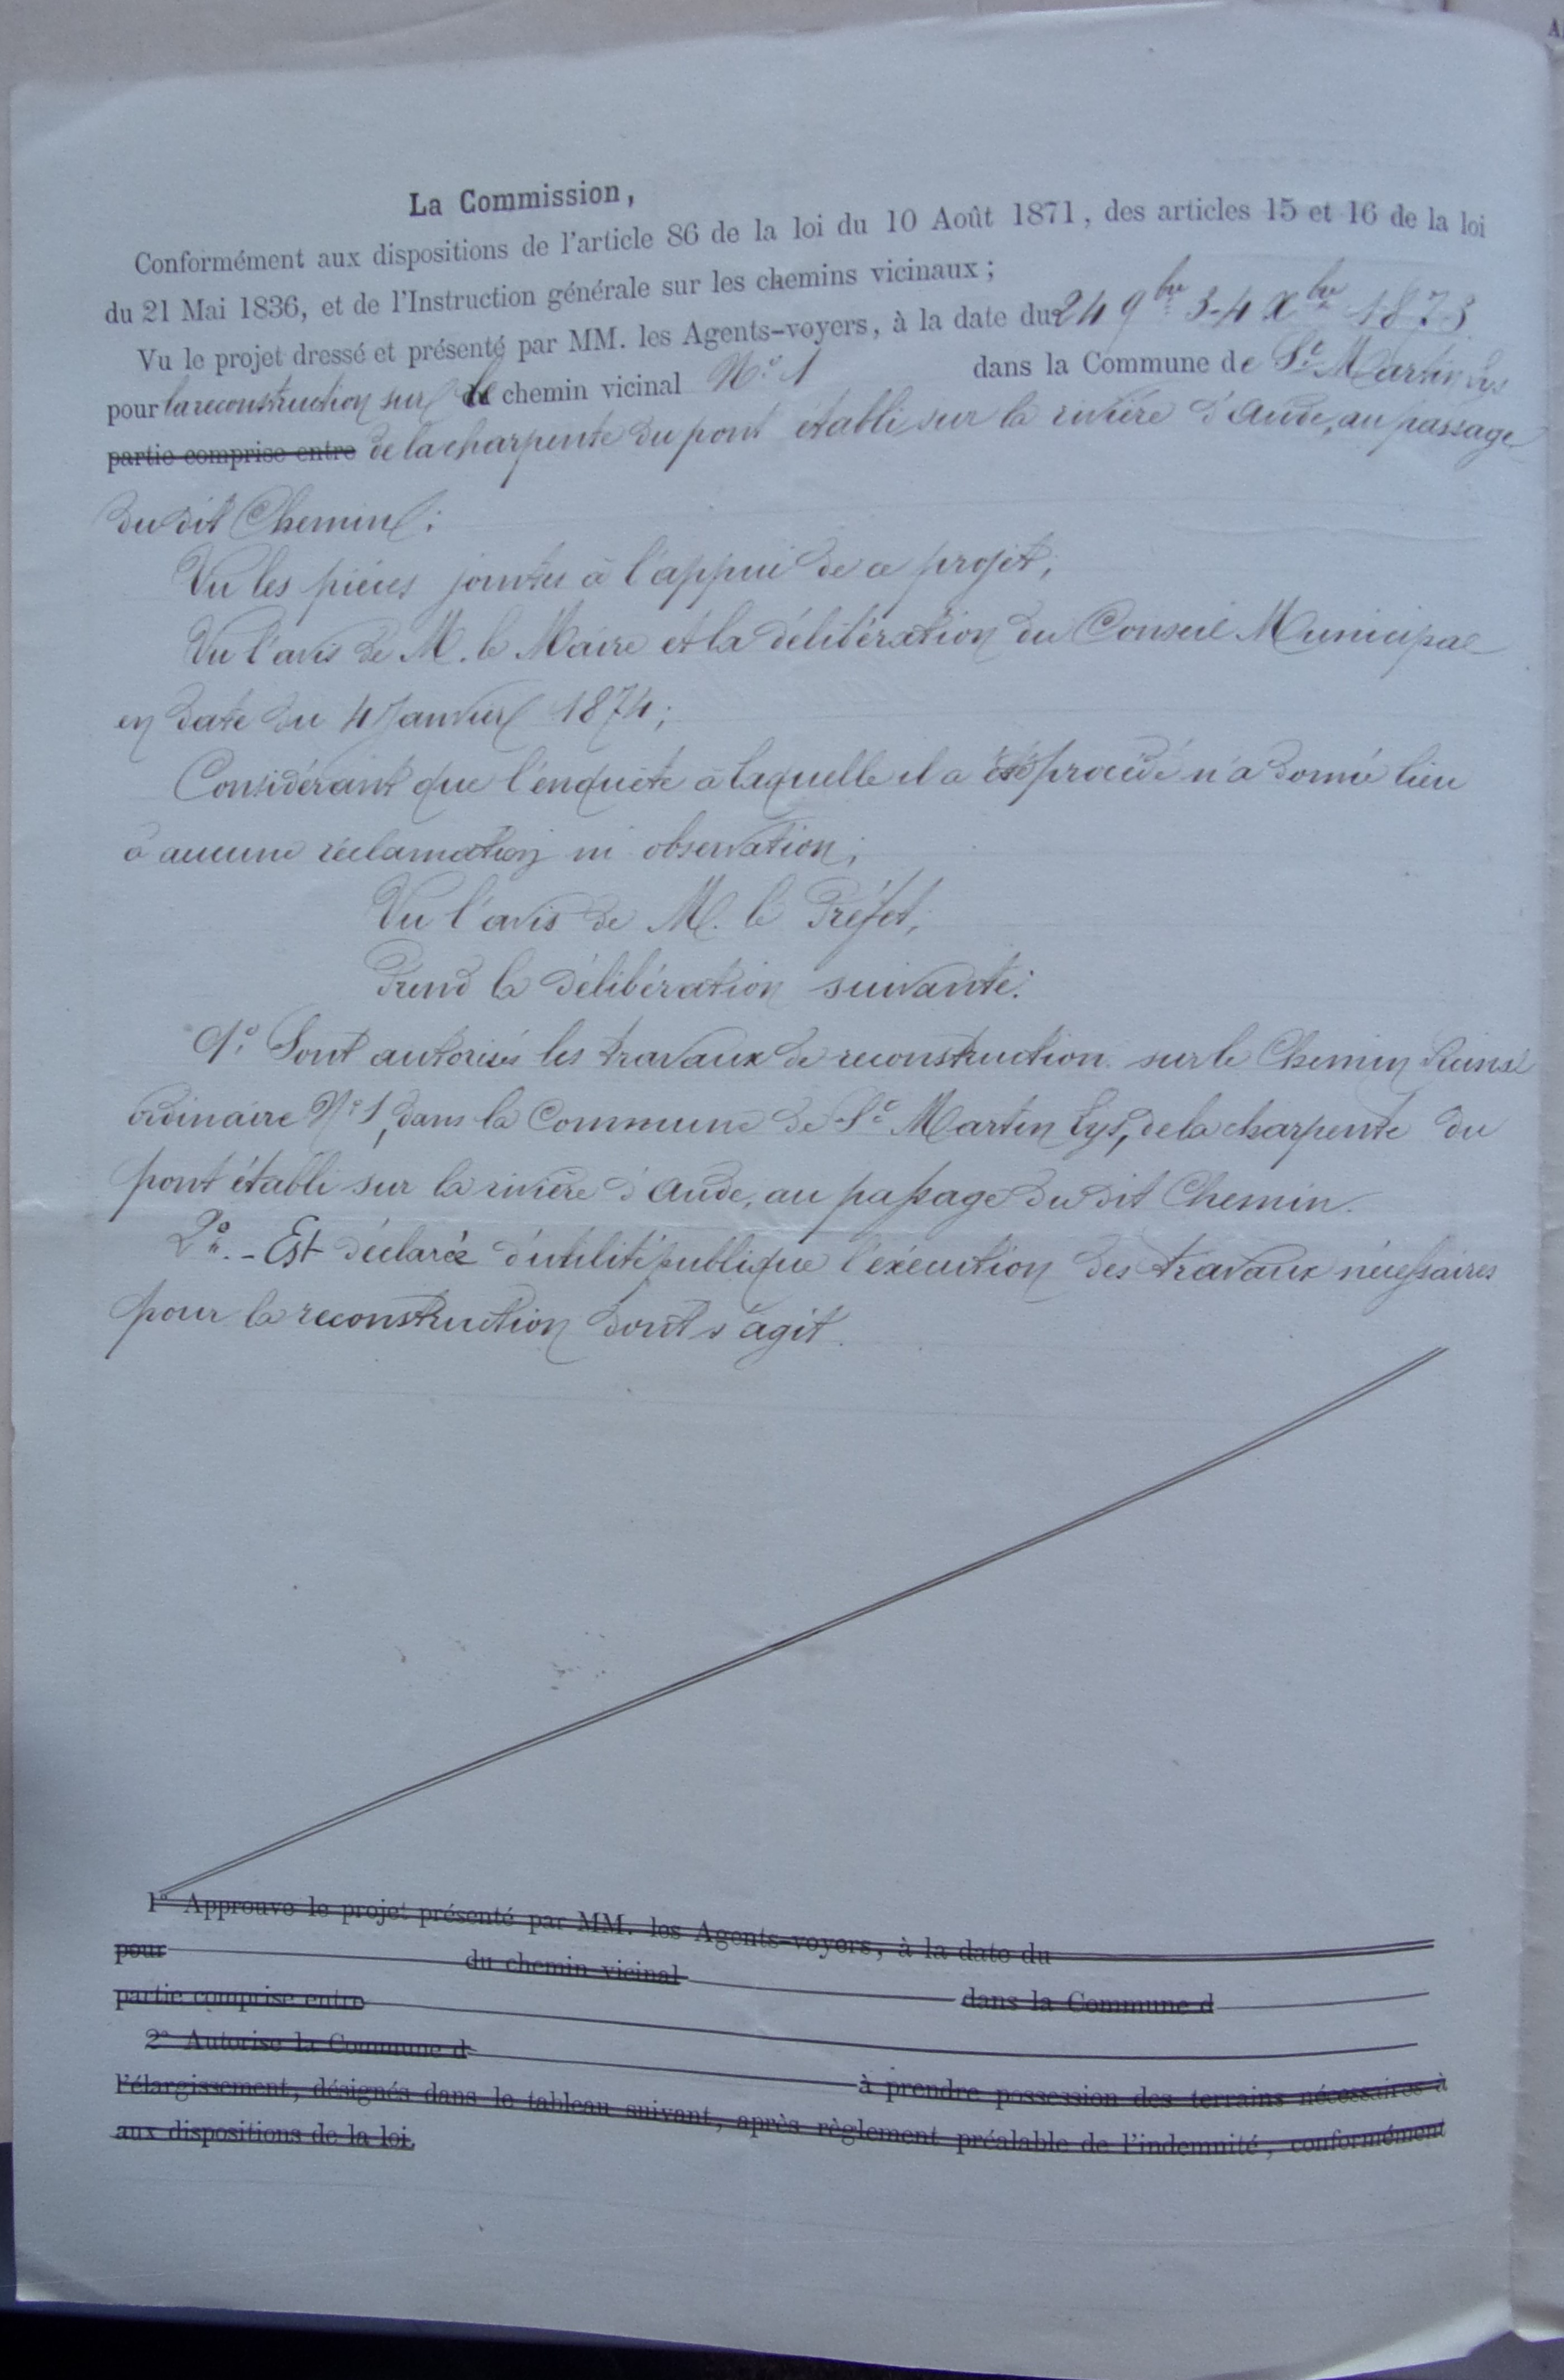 La Commission,
Conformément aux dispositions de l'article 86 de la loi du 10 Août 1871, des articles 15 et 16 de la loi
du 21 Mai 1836, et de l'Instruction générale sur les chemins vicinaux ;
Vu le projet dressé et présenté par MM. les Agents-voyers, à la date du 24 9bre 3-4 Xbre 1873
pour la reconstruction sur le chemin vicinal N.° 1 dans la Commune de St. Martin Lys
partie comprise entre de la charpente du pont établi sur la rivière d'Aude, au passage
du dit Chemin ;
Vu les pièces jointes à l'appui de ce projet ;
Vu l'avis de M. le Maire et la délibération du Conseil Municipal
en date du 4 Janvier 1874 ;
Considérant que l'enquête à laquelle il a été procédé n'a donné lieu
à aucune réclamation ni observation ;
Vu l'avis de M. le Préfet,
Prend la délibération suivante :
1.° Sont autorisés les travaux de reconstruction sur le Chemin
ordinaire N.° 1, dans la Commune de St Martin Lys, de la charpente du
pont établi sur la rivière d'Aude, au passage du dit Chemin.
2.° - Est déclarée d'utilité publique l'éxécution des travaux nécessaires
pour la reconstruction dont s'agit.
1° Approuve le projet présenté par MM. les Agents-voyers, à la date du
pour du chemin vicinal dans la Commune d
partie comprise entre
2° Autorise la Commune d à prendre possession des terrains nécessaires à
l'élargissement, désignés dans le tableau suivant, après règlement préalable de l'indemnité, conformément
aux dispositions de la loi.